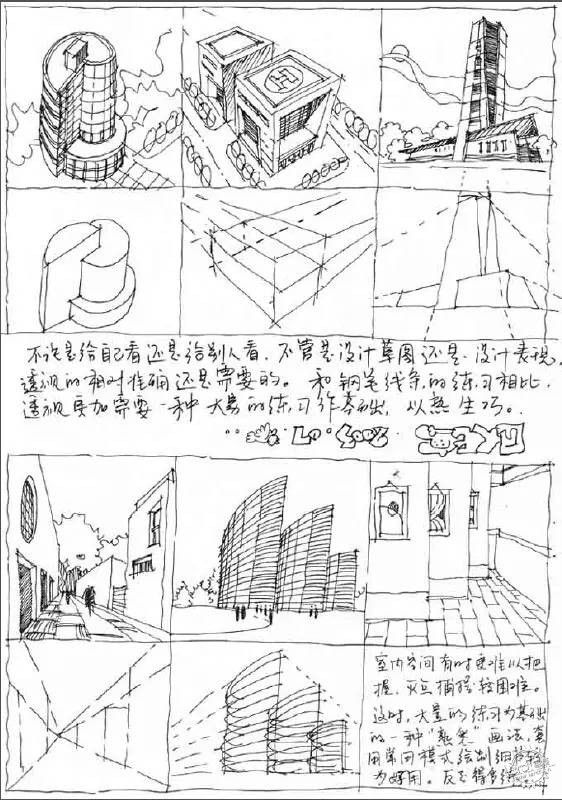 H
不论是给自己看还是给别人看，不管是设计草图还是设计表现，
透视的相对准确还是需要的。和钢笔线条的练习相比，
透视更加需要一种大量的练习作基础，以熟生巧。
室内空间有时更难以把
握，灭点捕捉较困难。
这时，大量的练习为基础
的一种“熟觉”画法，套
用常用模式绘制细节较
为好用。反正得多练